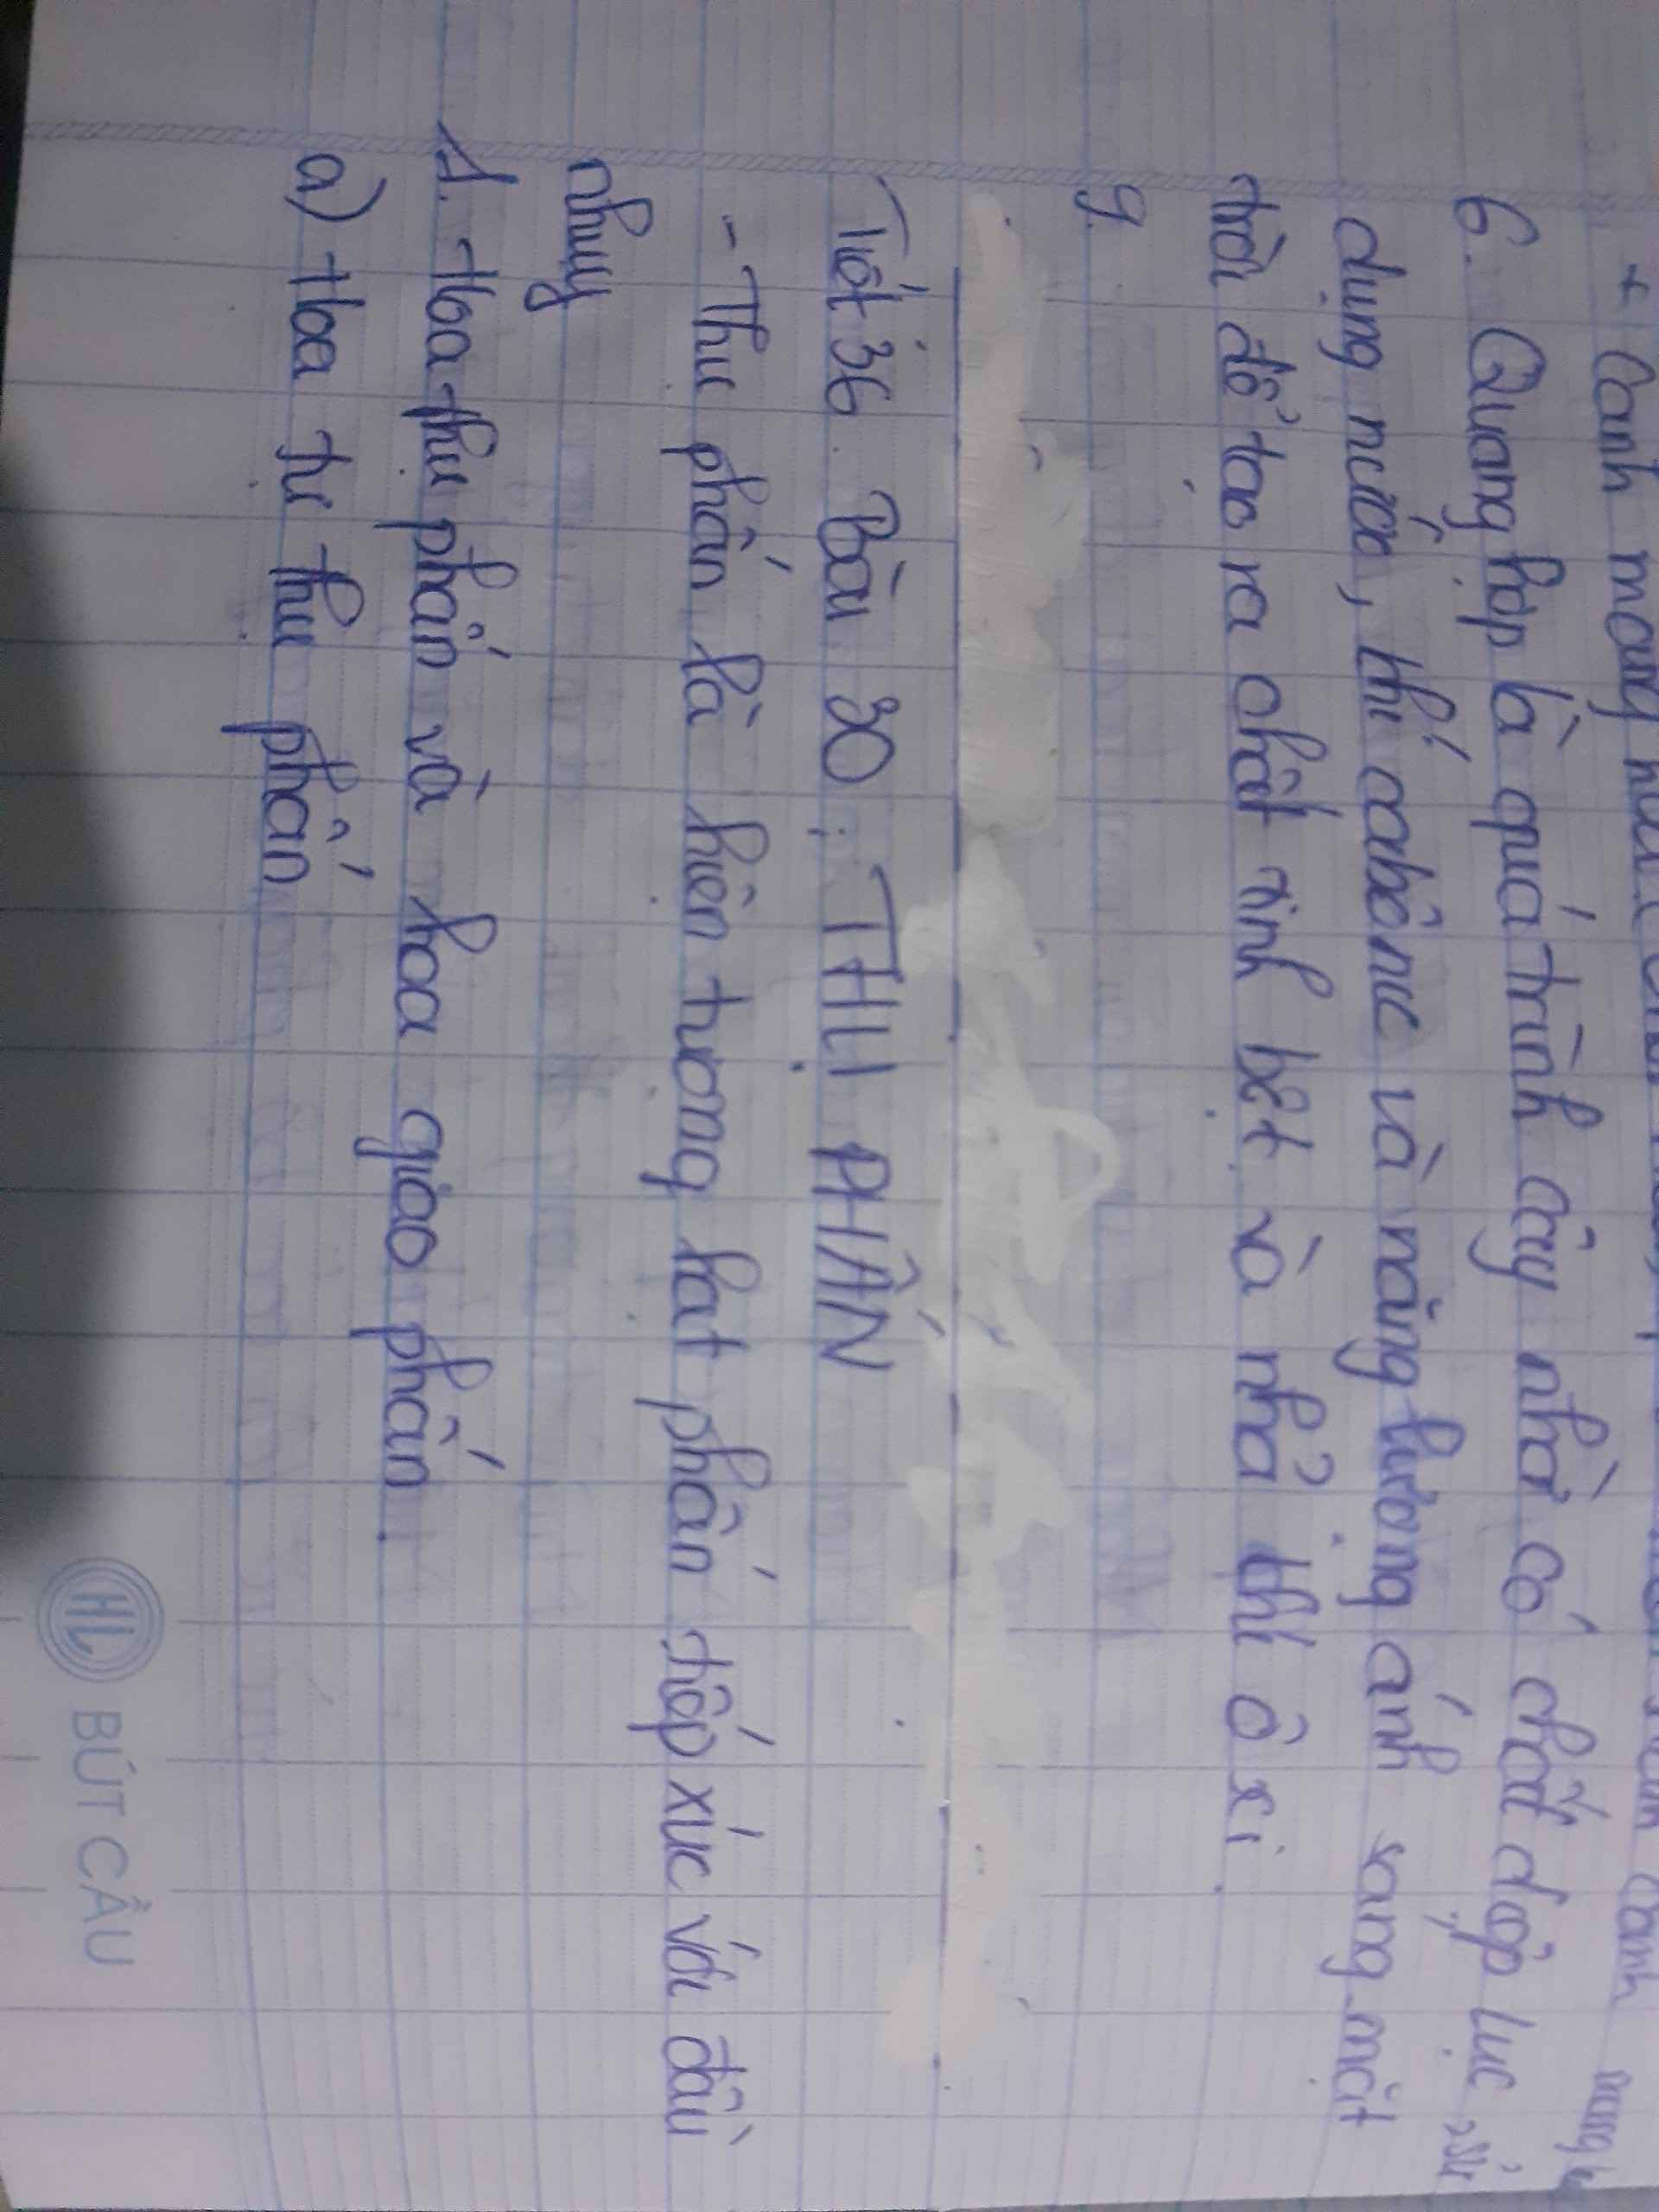 + Canh mang
6. Quang hợp là quá trình cây nhờ có chất diệp lục sử
dụng nước, khí cabônic và năng lượng ánh sang mặt
trời để tạo ra chất tinh bột và nhả khí ô xi.
9.
Tiết 36. Bài 30: THỤ PHẤN
- Thụ phấn là hiện tượng hạt phấn tiếp xúc với đầu
nhụy
1. Hoa thụ phấn và hoa giao phấn.
a) Hoa tự thụ phấn
HL BÚT CẦU